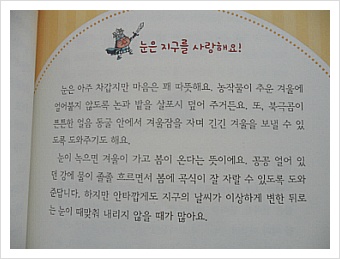 눈은 지구를 사랑해요!
눈은 아주 차갑지만 마음은 꽤 따뜻해요. 농작물이 추운 겨울에
얼어붙지 않도록 논과 밭을 살포시 덮어 주거든요. 또, 북극곰이
튼튼한 얼음 동굴 안에서 겨울잠을 자며 긴긴 겨울을 보낼 수 있
도록 도와주기도 해요.
눈이 녹으면 겨울이 가고 봄이 온다는 뜻이에요. 꽁꽁 얼어 있
던 강에 물이 졸졸 흐르면서 봄에 곡식이 잘 자랄 수 있도록 도와
준답니다. 하지만 안타깝게도 지구의 날씨가 이상하게 변한 뒤로
는 눈이 때맞춰 내리지 않을 때가 많아요.